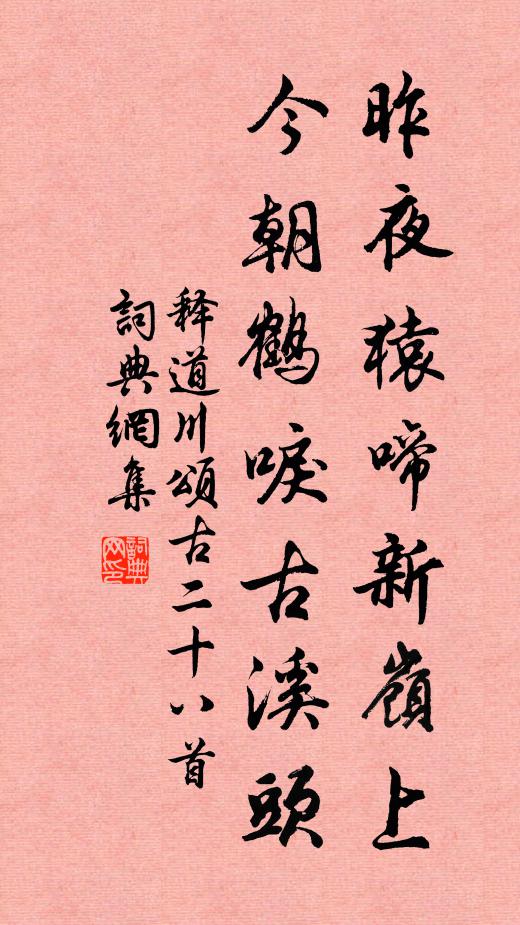 昨夜猿啼新嶺上
今朝鶴唳古溪頭
释道川頌古二十八首
詞典網集
詞典网印